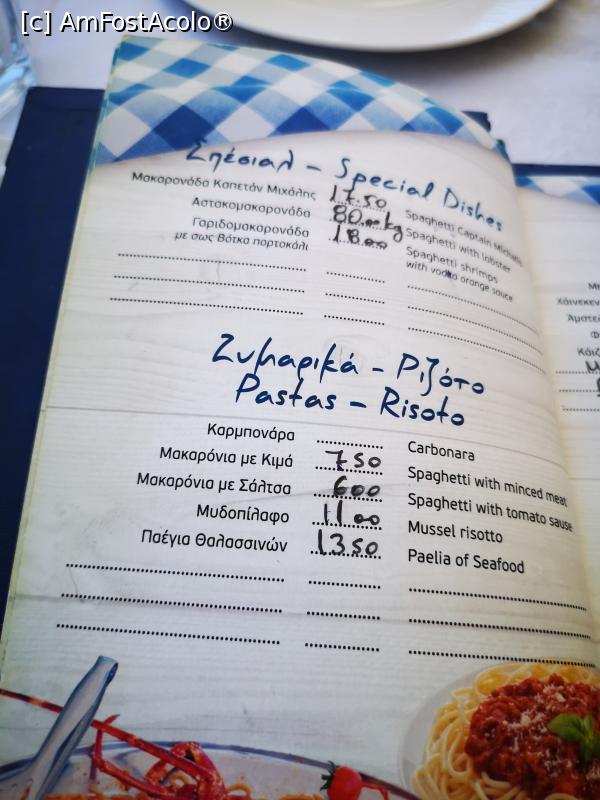 [c] AmFostAcolo®
Σπέσιαλ - Special Dishes
Μακαρονάδα Καπετάν Μιχάλης 17.50 Spaghetti Captain
Αστακομακαρονάδα 80.00 kg Spaghetti with lobster
Γαριδομακαρονάδα 18.00 Spaghetti shrimps
με σως Βότκα πορτοκάλι with vodka orange sauce
Ζυμαρικά - Ριζότο
Pastas - Risoto
Καρμπονάρα Carbonara
Μακαρόνια με Κιμά 7.50 Spaghetti with minced meat
Μακαρόνια με Σάλτσα 6.00 Spaghetti with tomato sause
Μυδοπίλαφο 11.00 Mussel risotto
Παέγια Θαλασσινών 13.50 Paelia of Seafood